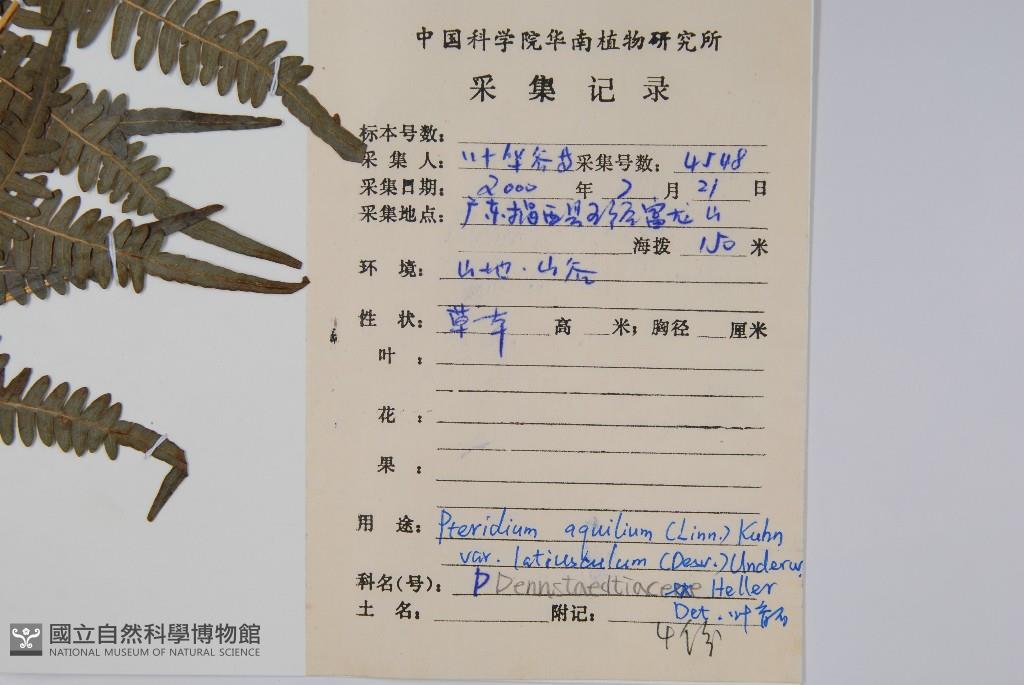 中国科学院华南植物研究所
采集记录
标本号数:
采集人: 叶华谷 采集号数: 4548
采集日期: 2000 年 7 月 21 日
采集地点: 广东揭西县 富龙山
海拨 150 米
环境: 山地·山谷
性状: 草本 高 米; 胸径 厘米
叶:
花:
果:
用途: Pteridium aquilium (Linn.) Kuhn
var. latiusculum (Desv.) Underw.
科名(号): P Dennstaedtiaceae Heller
土名: 附记: Det. 叶
4份
國立自然科學博物館
NATIONAL MUSEUM OF NATURAL SCIENCE